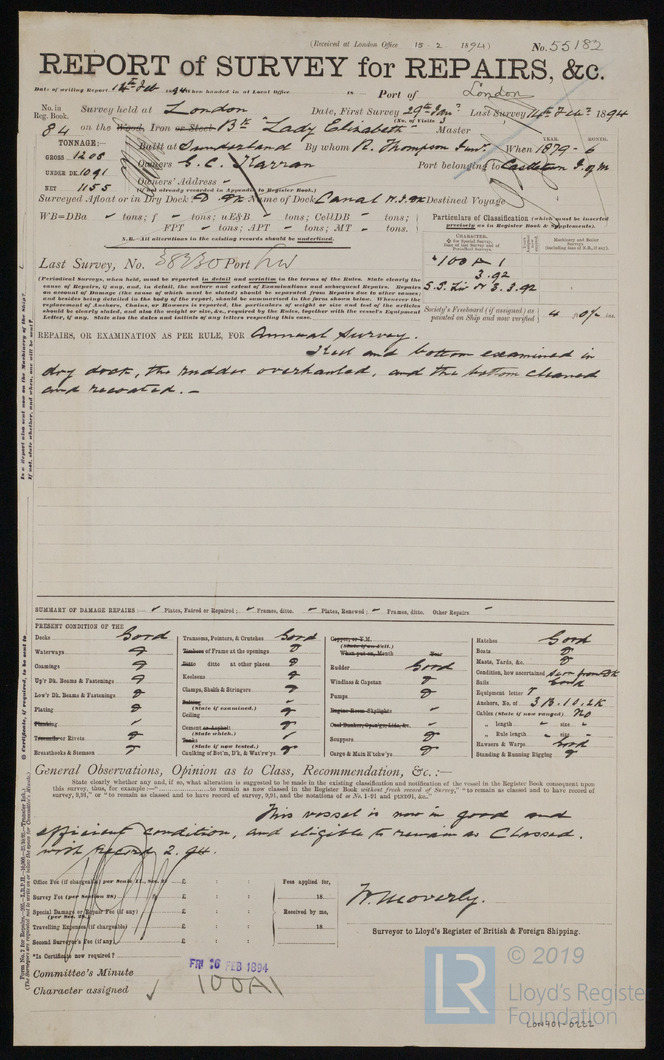 (Received at London Office 15-2 1894)
No. 55182
REPORT of SURVEY for REPAIRS, &c.
Date of writing Report 14th Feb 1894 when handed in at Local Office 18 Port of London
No. in Reg. Book. Survey held at London Date, First Survey 29th Jan Last Survey 14th Feb 1894
(No. of Visits 3
84 on the Wood, Iron or Steel Bk "Lady Elizabeth" Master
TONNAGE:—
GROSS 1208
UNDER DK. 1091
NET 1155
Built at Sunderland By whom R. Thompson Junr. When 1879 - 6
YEAR. MONTH.
Owners G. C. Karran Port belonging to Castletown I. of M
Owners' Address -
(if not already recorded in Appendix to Register Book.)
Surveyed Afloat or in Dry Dock? Name of Dock Canal Destined Voyage
WB=DBa tons; f tons; uE&B tons; CellDB tons;
FPT tons; APT tons; MT tons.
N.B.—All alterations in the existing records should be underlined.
Particulars of Classification (which must be inserted precisely as in Register Book & Supplements).
Last Survey, No. 38330 Port Liv
(Periodical Surveys, when held, must be reported in detail and seriatim in the terms of the Rules. State clearly the
cause of Repairs, if any, and, in detail, the nature and extent of Examinations and subsequent Repairs. Repairs
on account of Damage (the cause of which must be stated) should be separated from Repairs due to other causes;
and besides being detailed in the body of the report, should be summarised in the form shown below. Whenever the
replacement of Anchors, Chains, or Hawsers is reported, the particulars of weight or size and test of the articles
should be clearly stated, and also the weight or size, &c., required by the Rules, together with the vessel's Equipment
Letter, if any. State also the dates and initials of any letters respecting this case.
CHARACTER.
Machinery and Boiler Surveys
100 A 1
3.92
S.S. Liv No 3. 3.92
Society's Freeboard (if assigned) as painted on Ship and now verified 4 ft 0½ ins.
REPAIRS, OR EXAMINATION AS PER RULE, FOR Annual Survey.
Keel and bottom examined in
dry dock, the rudder overhauled, and the bottom cleaned
and recoated. -
SUMMARY OF DAMAGE REPAIRS:— Plates, Faired or Repaired; Frames, ditto. Plates, Renewed; Frames, ditto. Other Repairs
PRESENT CONDITION OF THE
Decks Good
Waterways
Coamings
Up'r Dk. Beams & Fastenings
Low'r Dk. Beams & Fastenings
Plating
Planking
Treenails or Rivets
Breasthooks & Stemson
Transoms, Pointers, & Crutches Good
Timbers of Frame at the openings
Ditto ditto at other places
Keelsons
Clamps, Shelfs & Stringers
(State if examined.)
Ceiling
Cement or Asphalt
(State which.)
(State if now tested.)
Caulking of Bot'm, D'k, & Wat'rw'ys
Copper, or Y.M.
(State if on Felt.)
When put on, Month Year
Rudder Good
Windlass & Capstan
Pumps
Engine Room Skylights
Scuppers
Cargo & Main H'tchw'ys
Hatches Good
Boats
Masts, Yards, &c.
Condition, how ascertained Seen from Dk
Sails Good
Equipment letter T
Anchors, No. of 3 B. 1 S. 2 K
Cables (State if now ranged) No
" length size
" Rule length size
Hawsers & Warps Good
Standing & Running Rigging
General Observations, Opinion as to Class, Recommendation, &c.:—
State clearly whether any and, if so, what alteration is suggested to be made in the existing classification and notification of the vessel in the Register Book consequent upon
this survey, thus, for example:—"to remain as now classed in the Register Book without fresh record of Survey," "to remain as classed and to have record of
survey, 9,91," or "to remain as classed and to have record of survey, 9,91, and the notations of ss No. 1-91 and PSND91, &c."
This vessel is now in good and
efficient condition, and eligible to remain as Classed.
with record 2.94.
Office Fee (if chargeable) £ : :
Survey Fee (per Section 28) £ : :
Special Damage or Repair Fee (if any) £ : :
Travelling Expenses (if chargeable) £ : :
Second Surveyor's Fee (if any) £ : :
Fees applied for, 18
Received by me, 18
W. Moverly.
Surveyor to Lloyd's Register of British & Foreign Shipping.
*Is Certificate now required?
Committee's Minute FRI 16 FEB 1894
Character assigned 100A1
© 2019
LR
Lloyd's Register
Foundation
LON701-0222